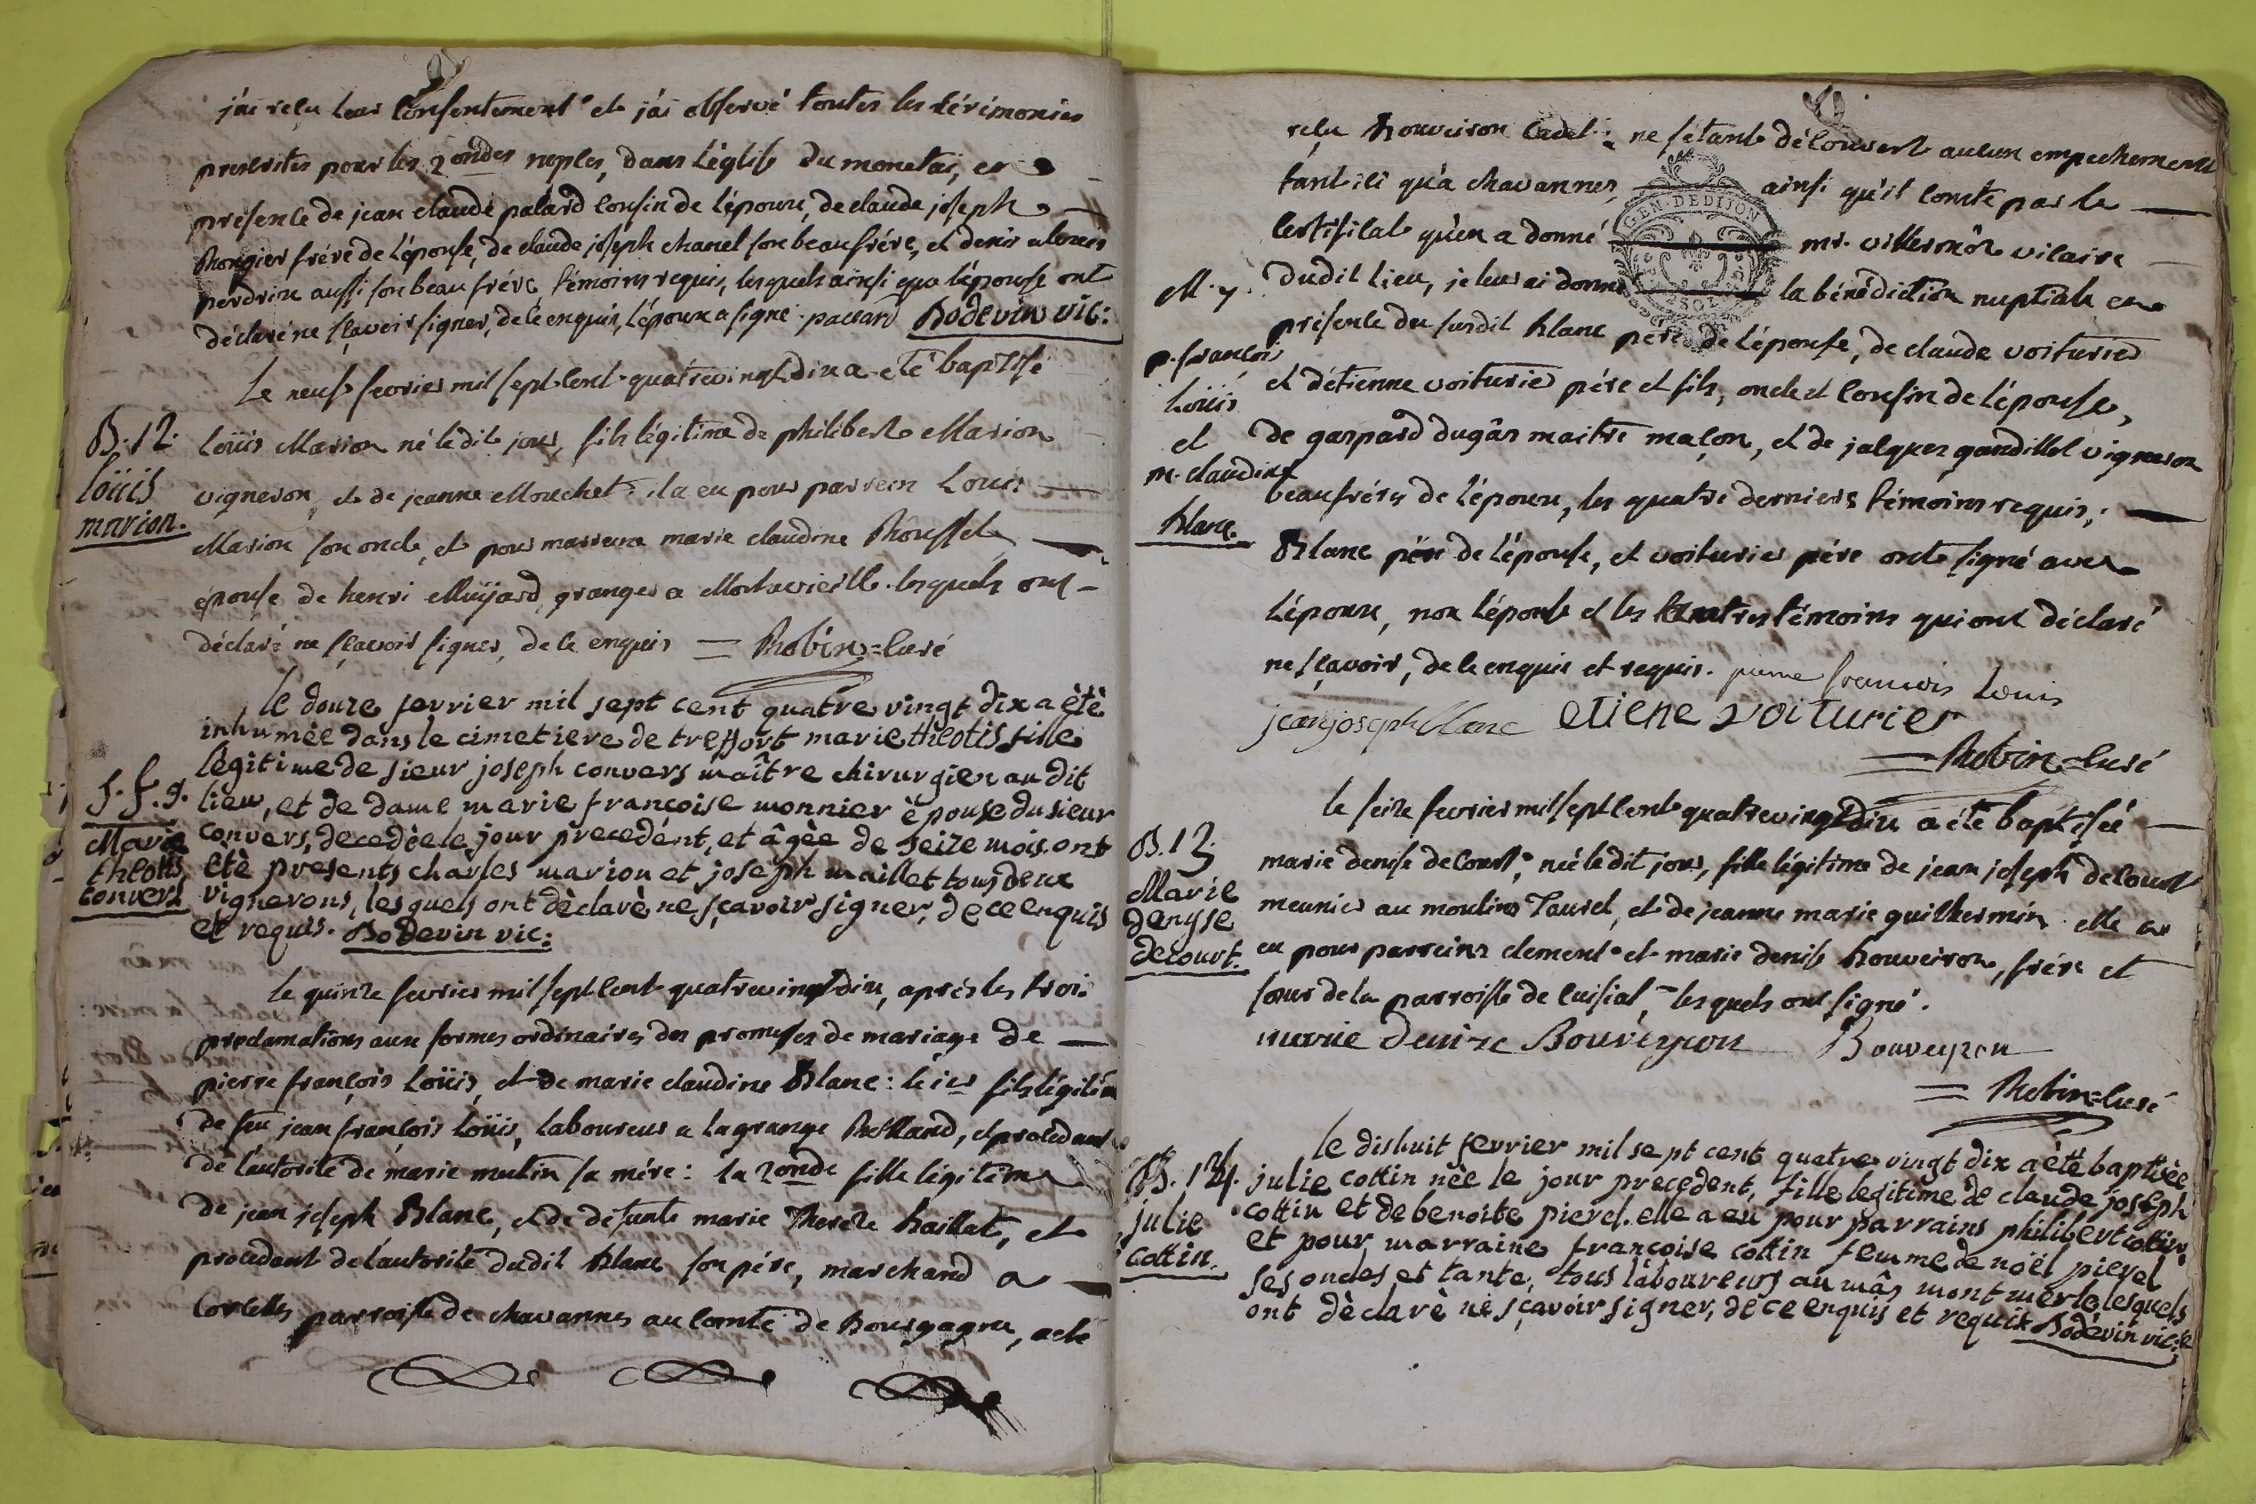 j'ai reçu leur consentement et j'ai observé toutes les cérémonies
prescrites pour les 2ondes nopces, dans l'église du monetai, en
présence de jean claude palard cousin de l'époux, de claude joseph
Rougier frére de l'épouse, de claude joseph chanel son beaufrére, et denis
perdrix aussi son beau frére témoins requis, lesquels ainsi que l'épouse ont
déclaré ne sçavoir signer, de ce enquis, l'époux a signé. paccard Bodevin vic:
Le neuf fevrier mil sept cent quatrevingt dix a eté baptisé
B. 12.
loüis
marion.
loüis Marion né ledit jour, fils légitime de philibert Marion
vigneron, et de jeanne Mouchet: il a eu pour parrein Louis
Marion son oncle, et pour marreine marie claudine Roussel
épouse de henri Muijard granger a Montavieille. lesquels ont
déclaré ne sçavoir signer, de ce enquis = Robin = curé
le douze fevrier mil sept cent quatre vingt dix a èté
inhumèe dans le cimetiere de treffort marie theotis fille
S. f. 9.
Marie
theotis
convers
legitime de sieur joseph convers maître chirurgien au dit
lieu, et de dame marie françoise monnier èpouse du sieur
convers, decedèe le jour precedent, et âgèe de seize mois. ont
étè presents charles marion et joseph maillet tous deux
vignerons, lesquels ont dèclarè ne sçavoir signer, de ce enquis
et requis. Bodevin vic:
le quinze fevrier mil sept cent quatrevingt dix, après les trois
proclamations aux formes ordinaires des promesses de mariage de
pierre françois Loüis, et de marie claudine Blanc: le 1er fils légitime
de feu jean françois loüis, laboureur a la grange Rolland, et procedant
de l'autorité de marie mutin sa mére: la 2onde fille légitime
de jean joseph Blanc, et de defunte marie Thereze haillat, et
procedant de l'autorité dudit blanc son pére, marchand a
Corcelles parroisse de chavannes au comté de Bourgogne, acte
reçu bouveiron cadet: ne s'etant découvert aucun empechement
tant ici qu'a chavannes, ainsi qu'il conste par le
certificat qu'en a donné mr. villermôz vicaire
GEN. DEDIJON
M. 7.
p. françois
loüis
et
m. claudine
blanc
dudit lieu, je leur ai donné la bénédiction nuptiale en
présence du susdit blanc pére de l'épouse, de claude voiturier
et d'étienne voiturier pére et fils, oncle et cousin de l'épouse,
de gaspard dugâs maitre maçon, et de jacques gandillet vigneron
beaufréres de l'époux, les quatre derniers témoins requis;
Blanc pére de l'épouse, et voiturier pére ont signé avec
l'époux, non l'épouse et les autres témoins qui ont déclaré
ne sçavoir, de ce enquis et requis. pierre francois Louis
jean joseph blanc etiene voiturier
= Robin = curé
le seize fevrier mil sept cent quatrevingt dix a été baptisée
B. 13.
Marie
denyse
decourt.
marie denise decourt, née le dit jour, fille légitime de jean joseph decourt
meunier au moulins Taurel, et de jeanne marie guilhermin. elle a
eu pour parreins clement et marie denise bouveiron, frére et
sœur de la parroisse de cuisial, lesquels ont signé.
marie denize Bouveyron Bouveyron
= Robin = curé
le dishuit fevrier mil sept cent quatre vingt dix a étè baptisèe
B. 14.
julie
cottin.
julie cottin nèe le jour precedent, fille legitime de claude joseph
cottin et de benoite pierel. elle a eu pour parrains philibert cottin
et pour marraine françoise cottin femme de noël pierel
ses oncles et tante, tous laboureurs au mâs montmerle, lesquels
ont dèclarè ne sçavoir signer, de ce enquis et requis. Bodevin vic: